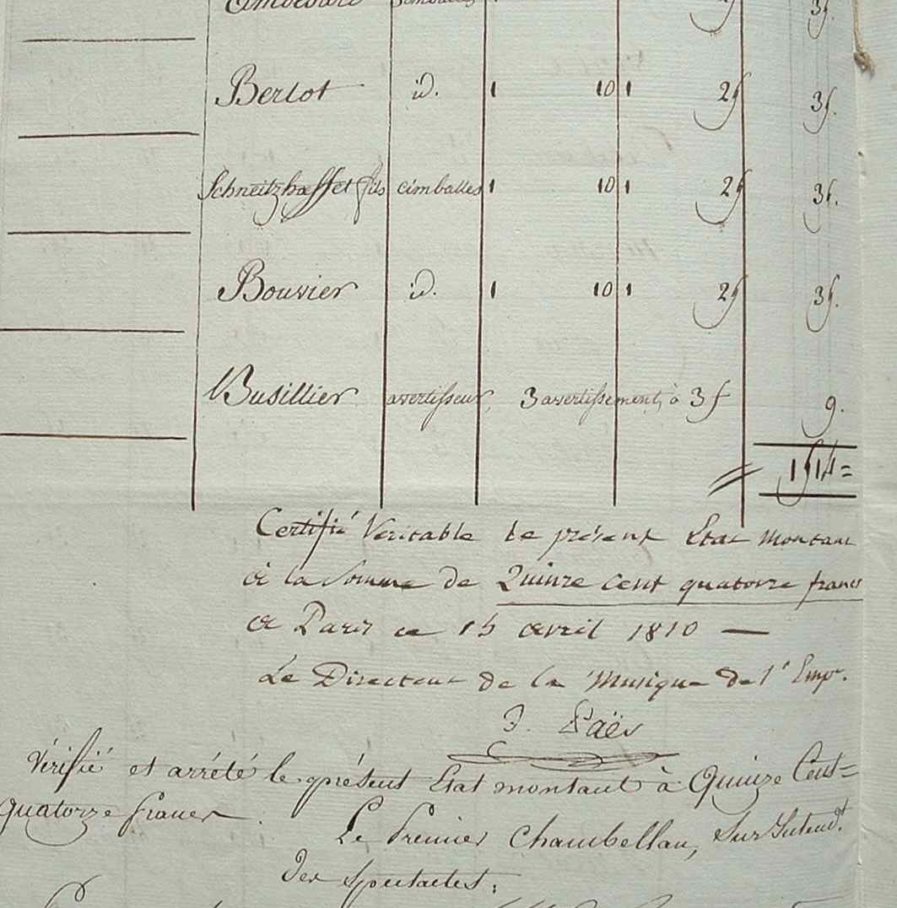 3f.
Berlot id. 1 10 1 2f 3f.
Schneitzhoeffet fils cimballes 1 10 1 2f 3f.
Bouvier id. 1 10 1 2f 3f.
Busillier avertisseur, 3 avertissements à 3f 9.
1514=
Certifié Veritable le présent Etat montant
à la Somme de Quinze cent quatorze francs
à Paris ce 15 avril 1810 —
Le Directeur de la Musique de l'Empr.
F. Paër
Vérifié et arrêté le présent Etat montant à Quinze Cent=
quatorze francs.
Le Premier Chambellan, SurIntendt.
Des Spectacles;